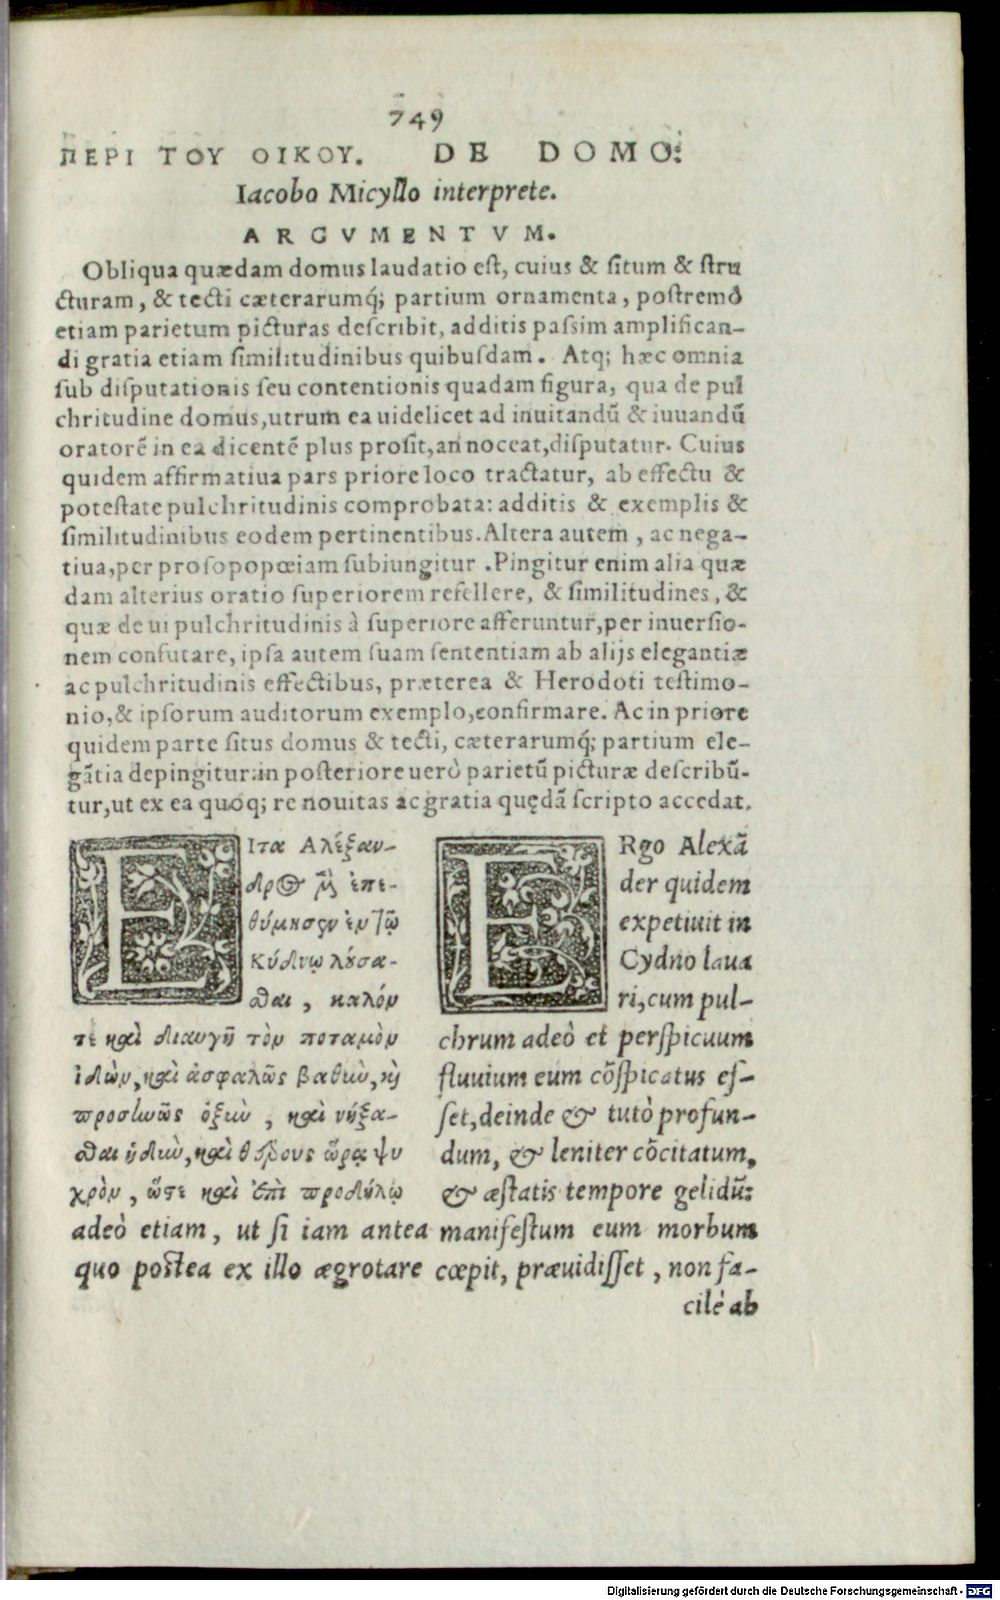 749
ΠΕΡΙ ΤΟΥ ΟΙΚΟΥ. DE DOMO:
Iacobo Micyllo interprete.
ARGVMENTVM.
Obliqua quædam domus laudatio eſt, cuius & ſitum & ſtru
cturam, & tecti cæterarumq́; partium ornamenta, poſtremò
etiam parietum picturas deſcribit, additis paſsim amplifican-
di gratia etiam ſimilitudinibus quibuſdam. Atq; hæc omnia
ſub diſputationis ſeu contentionis quadam figura, qua de pul
chritudine domus, utrum ea uidelicet ad inuitandũ & iuuandũ
oratorẽ in ea dicentẽ plus proſit, an noceat, diſputatur. Cuius
quidem affirmatiua pars priore loco tractatur, ab effectu &
poteſtate pulchritudinis comprobata: additis & exemplis &
ſimilitudinibus eodem pertinentibus. Altera autem, ac nega-
tiua, per proſopopœiam ſubiungitur. Pingitur enim alia quæ
dam alterius oratio ſuperiorem refellere, & ſimilitudines, &
quæ de ui pulchritudinis à ſuperiore afferuntur, per inuerſio-
nem confutare, ipſa autem ſuam ſententiam ab alijs elegantiæ
ac pulchritudinis effectibus, præterea & Herodoti teſtimo-
nio, & ipſorum auditorum exemplo, confirmare. Ac in priore
quidem parte ſitus domus & tecti, cæterarumq́; partium ele-
gãtia depingitur: in poſteriore uerò parietũ picturæ deſcribũ-
tur, ut ex ea quoq; re nouitas ac gratia quędã ſcripto accedat.
ΕΙτα Αλέξαν-
δρος μὲν ἐπε-
θύμησεν ἐν τῷ
κύδνῳ λούσα-
σθαι, καλόν
τε καὶ διαυγῆ τὸν ποταμὸν
ἰδὼν, καὶ ἀσφαλῶς βαθιὺ, καὶ
προσηνῶς ὀξιὺ, καὶ νήξα-
σθαι ἡδιὺ, καὶ θέρους ὥρᾳ ψυ
χρὸν, ὥστε καὶ ἐπὶ προδήλῳ
ERgo Alexã
der quidem
expetiuit in
Cydno laua
ri, cum pul-
chrum adeò et perſpicuum
fluuium eum cõſpicatus eſ-
ſet, deinde & tutò profun-
dum, & leniter cõcitatum,
& æſtatis tempore gelidũ:
adeò etiam, ut ſi iam antea manifeſtum eum morbum
quo poſtea ex illo ægrotare cœpit, præuidiſſet, non fa-
cilè ab
Digitalisierung gefördert durch die Deutsche Forschungsgemeinschaft - DFG